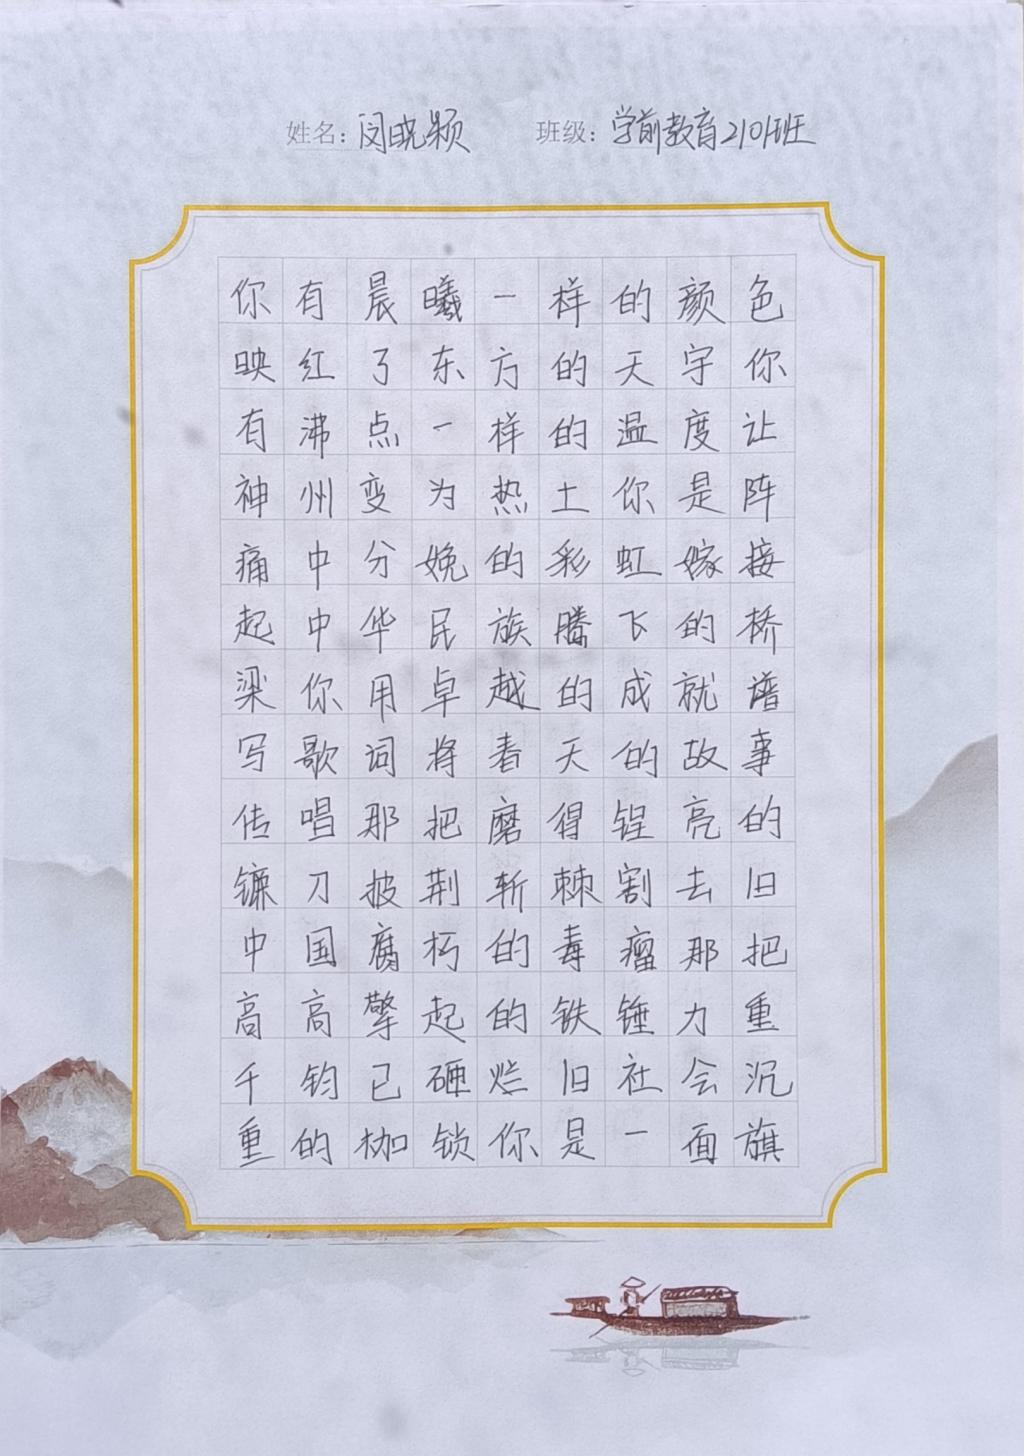 姓名：闵晓颖 班级：学前教育2101班
你有晨曦一样的颜色
映红了东方的天宇你
有沸点一样的温度让
神州变为热土你是阵
痛中分娩的彩虹嫁接
起中华民族腾飞的桥
梁你用卓越的成就谱
写歌词将春天的故事
传唱那把磨得锃亮的
镰刀披荆斩棘割去旧
中国腐朽的毒瘤那把
高高擎起的铁锤力重
千钧已砸烂旧社会沉
重的枷锁你是一面旗